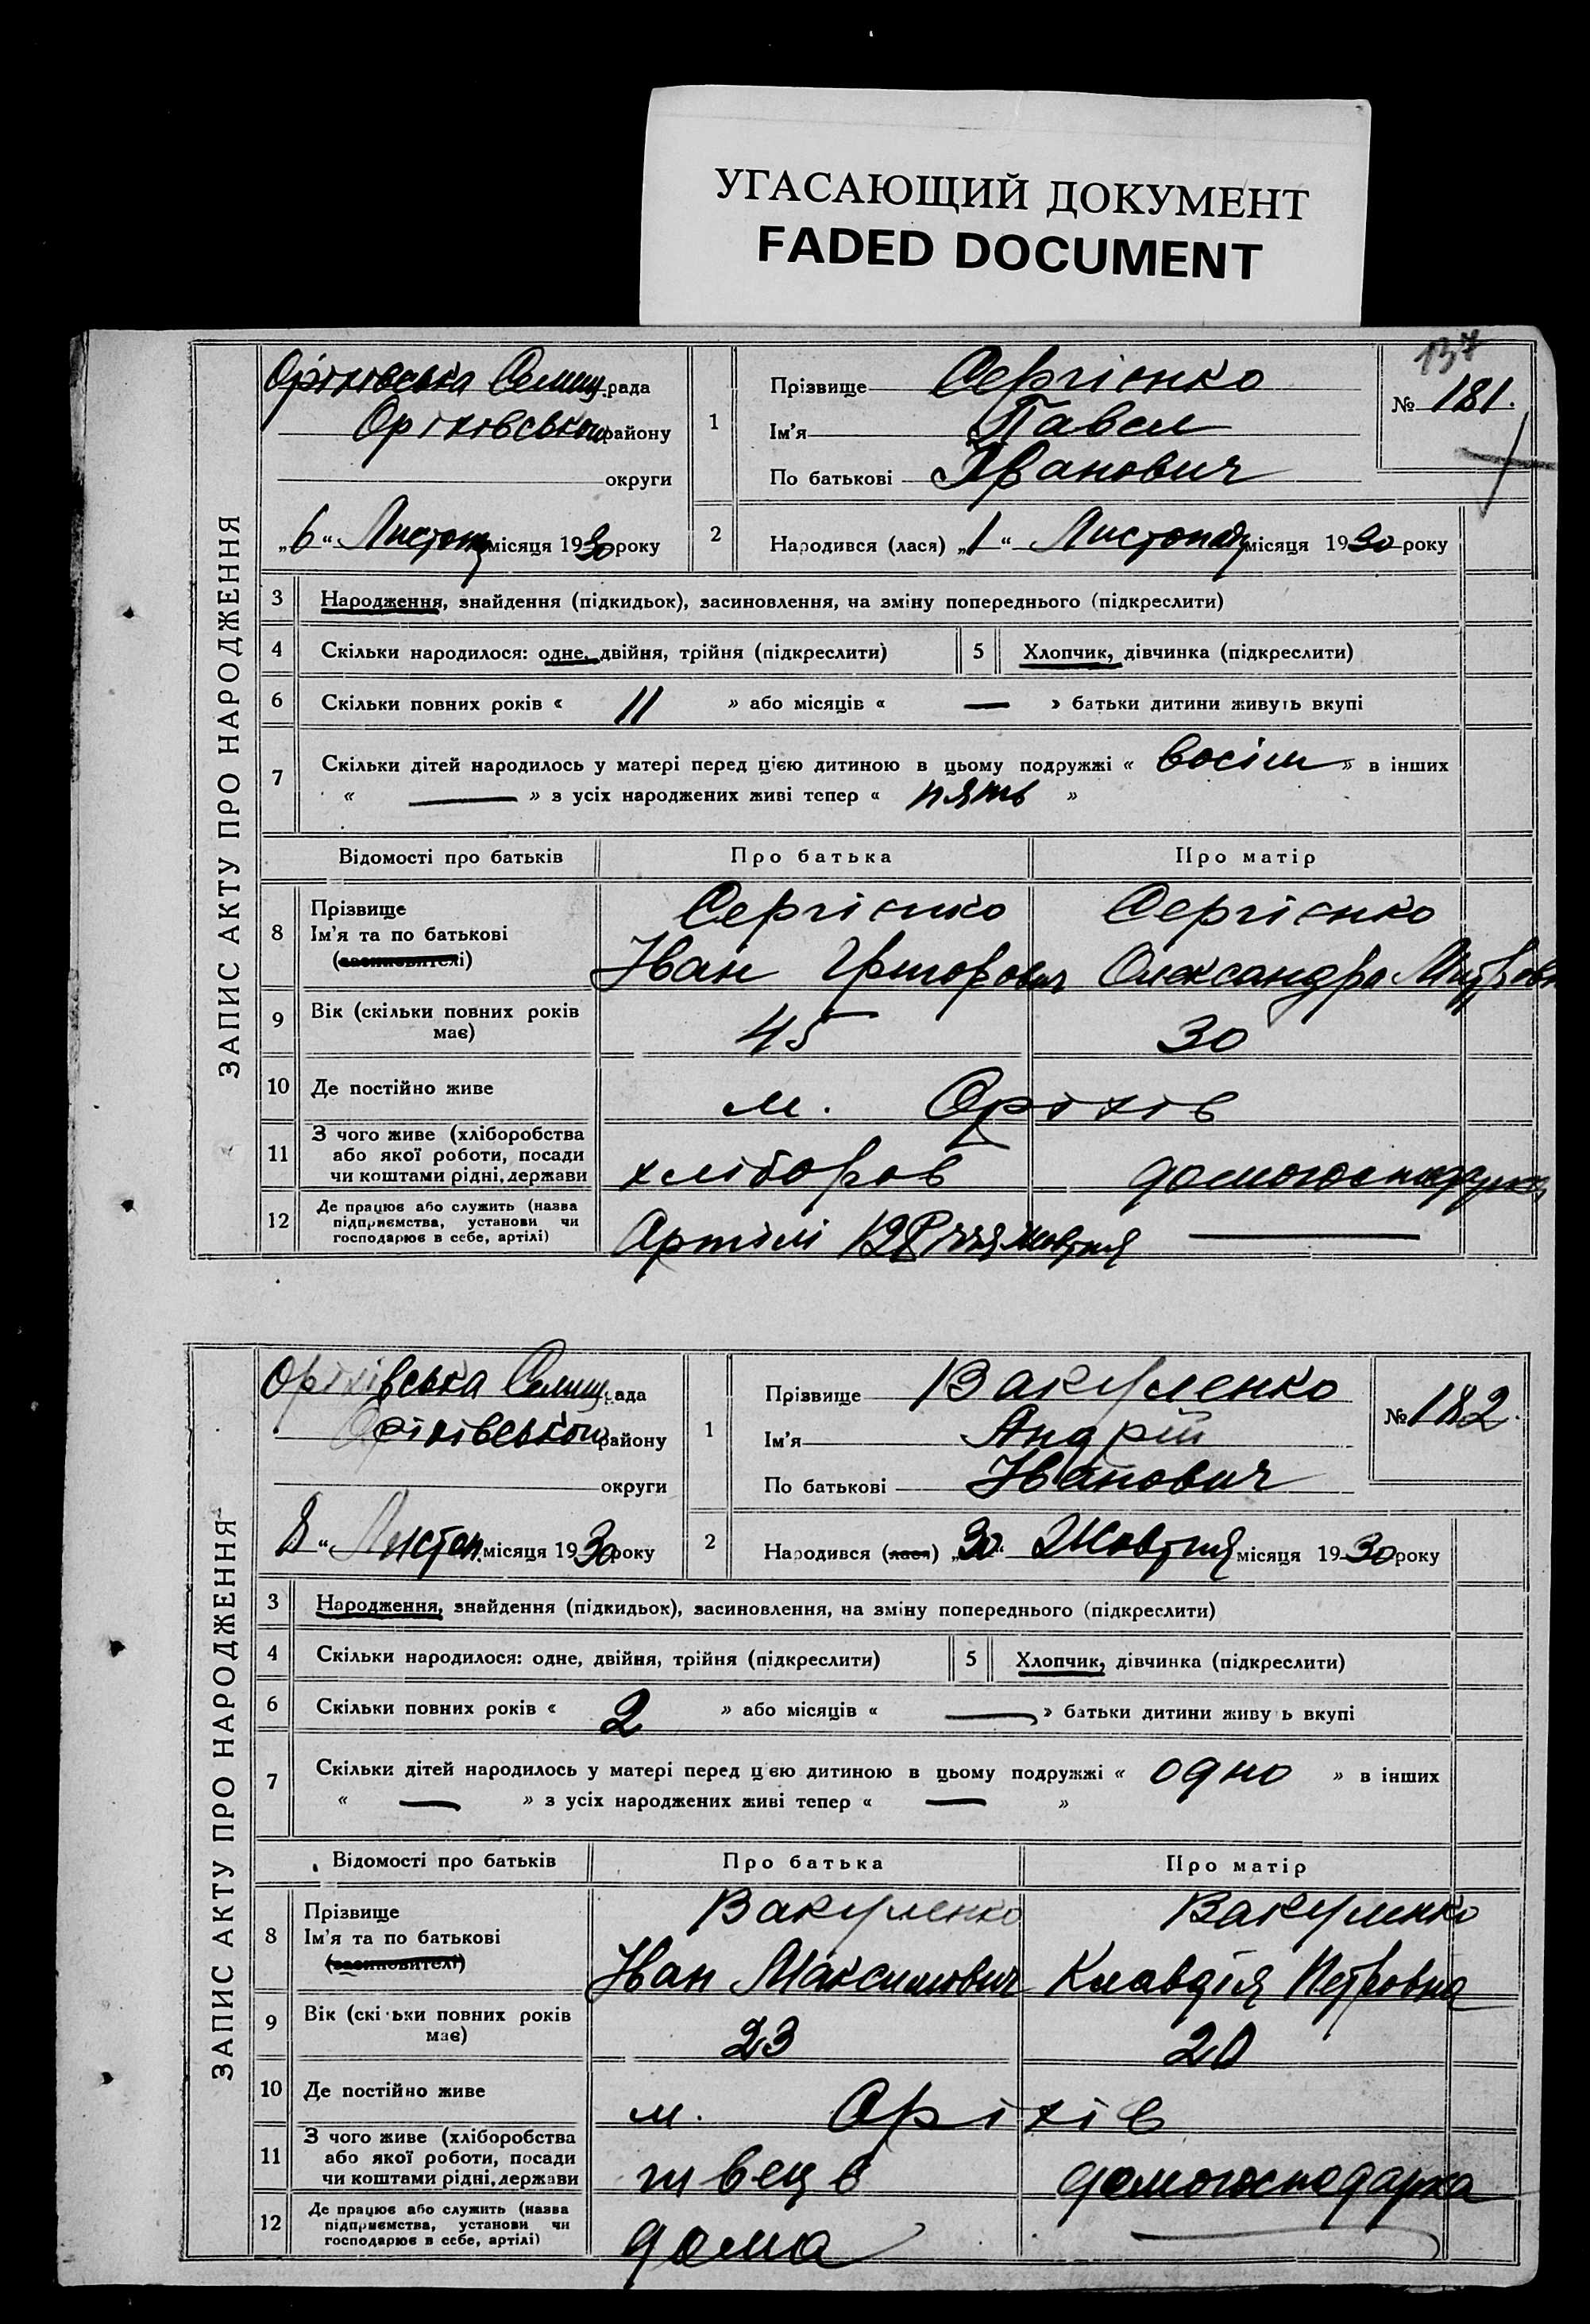 УГАСАЮЩИЙ ДОКУМЕНТ
FADED DOCUMENT
137
ЗАПИС АКТУ ПРО НАРОДЖЕННЯ
Оріхівська Селищ. рада
Оріхівського району
округи
„6“ Листопад місяця 1930 року
1
Прізвище Сергієнко
Ім'я Павел
По батькові Іванович
№ 181.
2
Народився (лася) „1“ Листопада місяця 1930 року
3 Народження, знайдення (підкидьок), засиновлення, на зміну попереднього (підкреслити)
4 Скільки народилося: одне, двійня, трійня (підкреслити) 5 Хлопчик, дівчинка (підкреслити)
6 Скільки повних років « 11 » або місяців « — » батьки дитини живуть вкупі
7 Скільки дітей народилось у матері перед цією дитиною в цьому подружжі « восім » в інших
« — » з усіх народжених живі тепер « пять »
Відомості про батьків Про батька Про матір
8 Прізвище Сергієнко Сергієнко
Ім'я та по батькові
(засиновителі) Іван Григорович Олександра
9 Вік (скільки повних років
має) 45 30
10 Де постійно живе м. Оріхів
11 З чого живе (хліборобства
або якої роботи, посади
чи коштами рідні, держави хлібороб домогосподарка
12 Де працює або служить (назва
підприємства, установи чи
господарює в себе, артілі) Артілі Жовтня —
ЗАПИС АКТУ ПРО НАРОДЖЕННЯ
Оріхівська Селищ. рада
Оріхівського району
округи
8“ Листоп. місяця 1930 року
1
Прізвище Вакуленко
Ім'я Андрій
По батькові Іванович
№ 182.
2
Народився (лася) „30“ Жовтня місяця 1930 року
3 Народження, знайдення (підкидьок), засиновлення, на зміну попереднього (підкреслити)
4 Скільки народилося: одне, двійня, трійня (підкреслити) 5 Хлопчик, дівчинка (підкреслити)
6 Скільки повних років « 2 » або місяців « — » батьки дитини живуть вкупі
7 Скільки дітей народилось у матері перед цією дитиною в цьому подружжі « одно » в інших
« — » з усіх народжених живі тепер « — »
Відомості про батьків Про батька Про матір
8 Прізвище Вакуленко Вакуленко
Ім'я та по батькові
(засиновителі) Іван Максимович Клавдія Петровна
9 Вік (скільки повних років
має) 23 20
10 Де постійно живе м. Оріхів
11 З чого живе (хліборобства
або якої роботи, посади
чи коштами рідні, держави швець домогосподарка
12 Де працює або служить (назва
підприємства, установи чи
господарює в себе, артілі) дома —